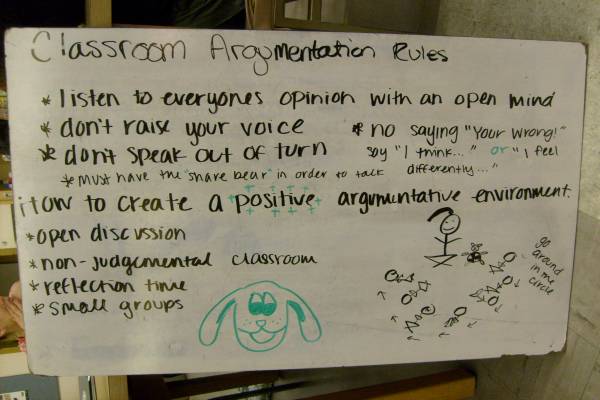 Classroom Argymentation Rules
* listen to everyones opinion with an open mind
* don't raise your voice
* don't speak out of turn
* Must have the "share bear" in order to talk
* no saying "Your wrong!"
say "I think..." or "I feel
differently..."
How to create a positive argumentative environment.
* open discussion
* non-judgemental classroom
* reflection time
* small groups
go
around
in the
circle